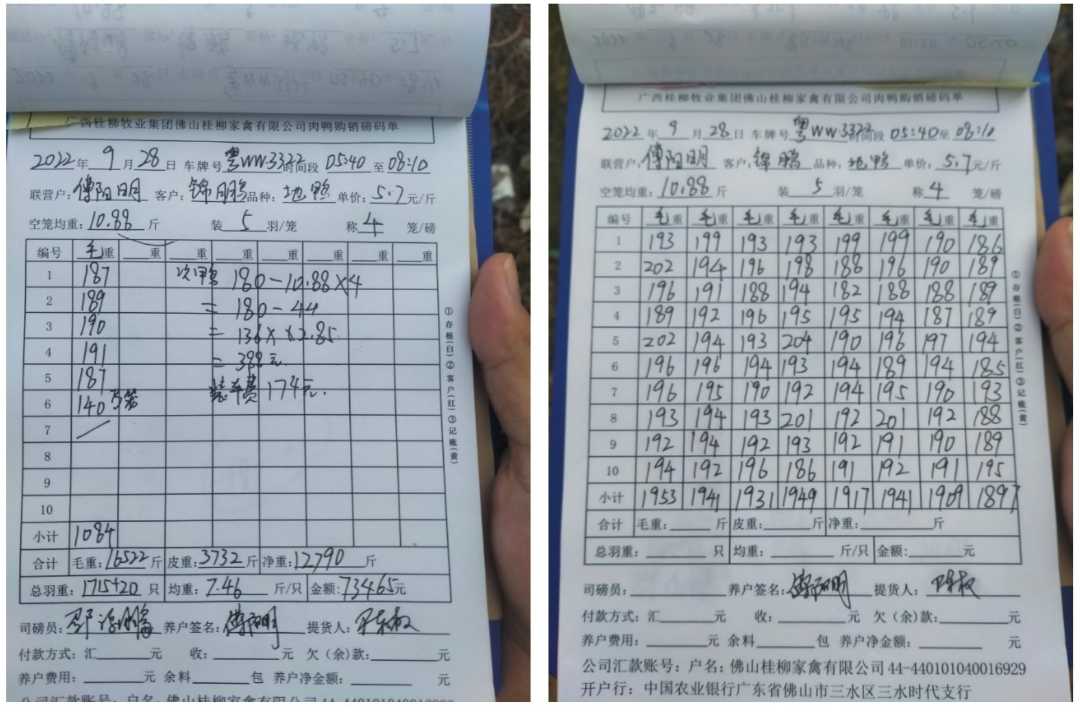 广西桂柳牧业集团佛山桂柳家禽有限公司肉鸭购销磅码单
2022年 9月28日 车牌号粤WW3322时间段 05:40 至 08:10
联营户:傅阳明 客户:锦鹏 品种:地鸭 单价:5.7元/斤
空笼均重:10.88 斤 装 5 羽/笼 称 4 笼/磅
编号 毛重 重 重 重 重 重 重 重
1 187 次鸭 180-10.88×4
2 189 =180-44
3 190 =136××2.85
4 191 =388元
5 187 装车费174元.
6 140 3笼
7
8
9
10
小计 1084
合计 毛重:16522斤 皮重:3732斤 净重:12790 斤
总羽重: 1715+20 只 均重:7.46 斤/只 金额:73465元
司磅员: 养户签名:傅阳明 提货人:
付款方式:汇 元 收: 元 欠(余)款: 元
养户费用: 元 余料 包 养户净金额: 元
公司汇款账号:户名:佛山桂柳家禽有限公司44-440101040016929
①存根(白)②客户(红)③记账(黄)
广西桂柳牧业集团佛山桂柳家禽有限公司肉鸭购销磅码单
2022年 9 月 28日 车牌号粤WW3322时间段 05:40至 08:10
联营户:傅阳明 客户:锦鹏 品种:地鸭 单价:5.7元/斤
空笼均重:10.88 斤 装 5 羽/笼 称 4 笼/磅
编号 毛重 毛重 毛重 毛重 毛重 毛重 毛重 毛重
1 193 199 193 193 199 199 190 186
2 202 194 196 198 188 196 190 189
3 196 191 188 194 182 188 188 189
4 189 192 196 195 195 194 187 189
5 202 194 193 204 190 196 197 194
6 196 196 194 193 194 189 194 185
7 196 195 190 192 194 195 190 193
8 193 194 193 201 192 201 192 188
9 192 194 192 193 192 191 190 189
10 194 192 196 186 191 192 191 195
小计 1953 1941 1931 1949 1917 1941 1909 1897
合计 毛重: 斤 皮重: 斤 净重: 斤
总羽重: 只 均重: 斤/只 金额: 元
司磅员: 养户签名:傅阳明 提货人:
付款方式:汇 元 收: 元 欠(余)款: 元
养户费用: 元 余料 包 养户净金额: 元
公司汇款账号:户名:佛山桂柳家禽有限公司44-440101040016929
开户行:中国农业银行广东省佛山市三水区三水时代支行
①存根(白)②客户(红)③记账(黄)